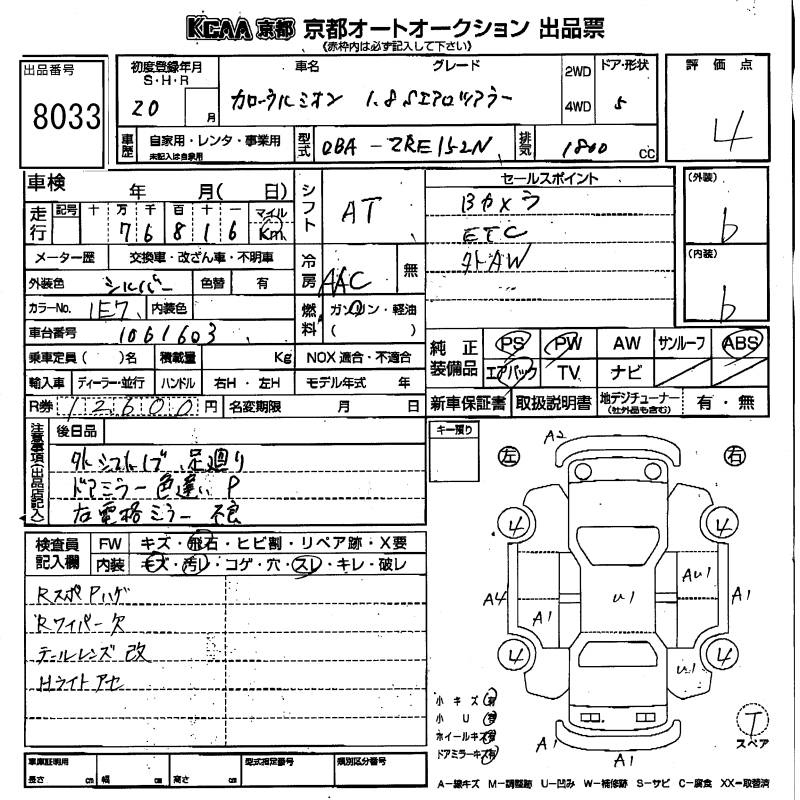 KCAA 京都 京都オートオークション 出品票
《赤枠内は必ず記入して下さい》
出品番号
8033
初度登録年月
S・H・R
20 月
車名 グレード
カローラルミオン 1.8Sエアロツアラー
2WD
4WD
ドア・形状
5
評価点
4
車歴 自家用・レンタ・事業用
未記入は自家用
型式 DBA-ZRE152N
排気 1800 cc
車検 年 月( 日)
走行 記号 十 万 千 百 十 一 マイル
7 6 8 1 6 Km
メーター歴 交換車・改ざん車・不明車
外装色 シルバー 色替 有
カラーNo. 1E7 内装色
車台番号 1061603
乗車定員( )名 積載量 Kg
輸入車 ディーラー・並行 ハンドル 右H・左H
R券 12600 円 名変期限 月 日
シフト AT
冷房 AAC 無
燃料 ガソリン・軽油
( )
NOX 適合・不適合
モデル年式 年
セールスポイント
Bカメラ
ETC
外AW
(外装)
b
(内装)
b
純正装備品 PS PW AW サンルーフ ABS
エアバック TV ナビ
新車保証書 取扱説明書 地デジチューナー
(社外品も含む)
有・無
注意事項(出品店記入)
後日品
外シフトノブ 足廻り
ドアミラー色違い P
右電格ミラー 不良
検査員記入欄
FW キズ・飛石・ヒビ割・リペア跡・X要
内装 キズ・汚レ・コゲ・穴・スレ・キレ・破レ
RスポPハゲ
Rワイパー欠
テールレンズ 改
Hライトアセ
車庫証明用
長さ cm 幅 cm 高さ cm
型式指定番号
類別区分番号
キー預り
左
右
A2
4
4
A4
A1
U1
AU1
A1
4
4
U1
A1
A1
小キズ 有
小U 有
ホイールキズ 有
ドアミラーキズ 有
T
スペア
A―線キズ M―調整跡 U―凹み W―補修跡 S―サビ C―腐食 XX―取替済